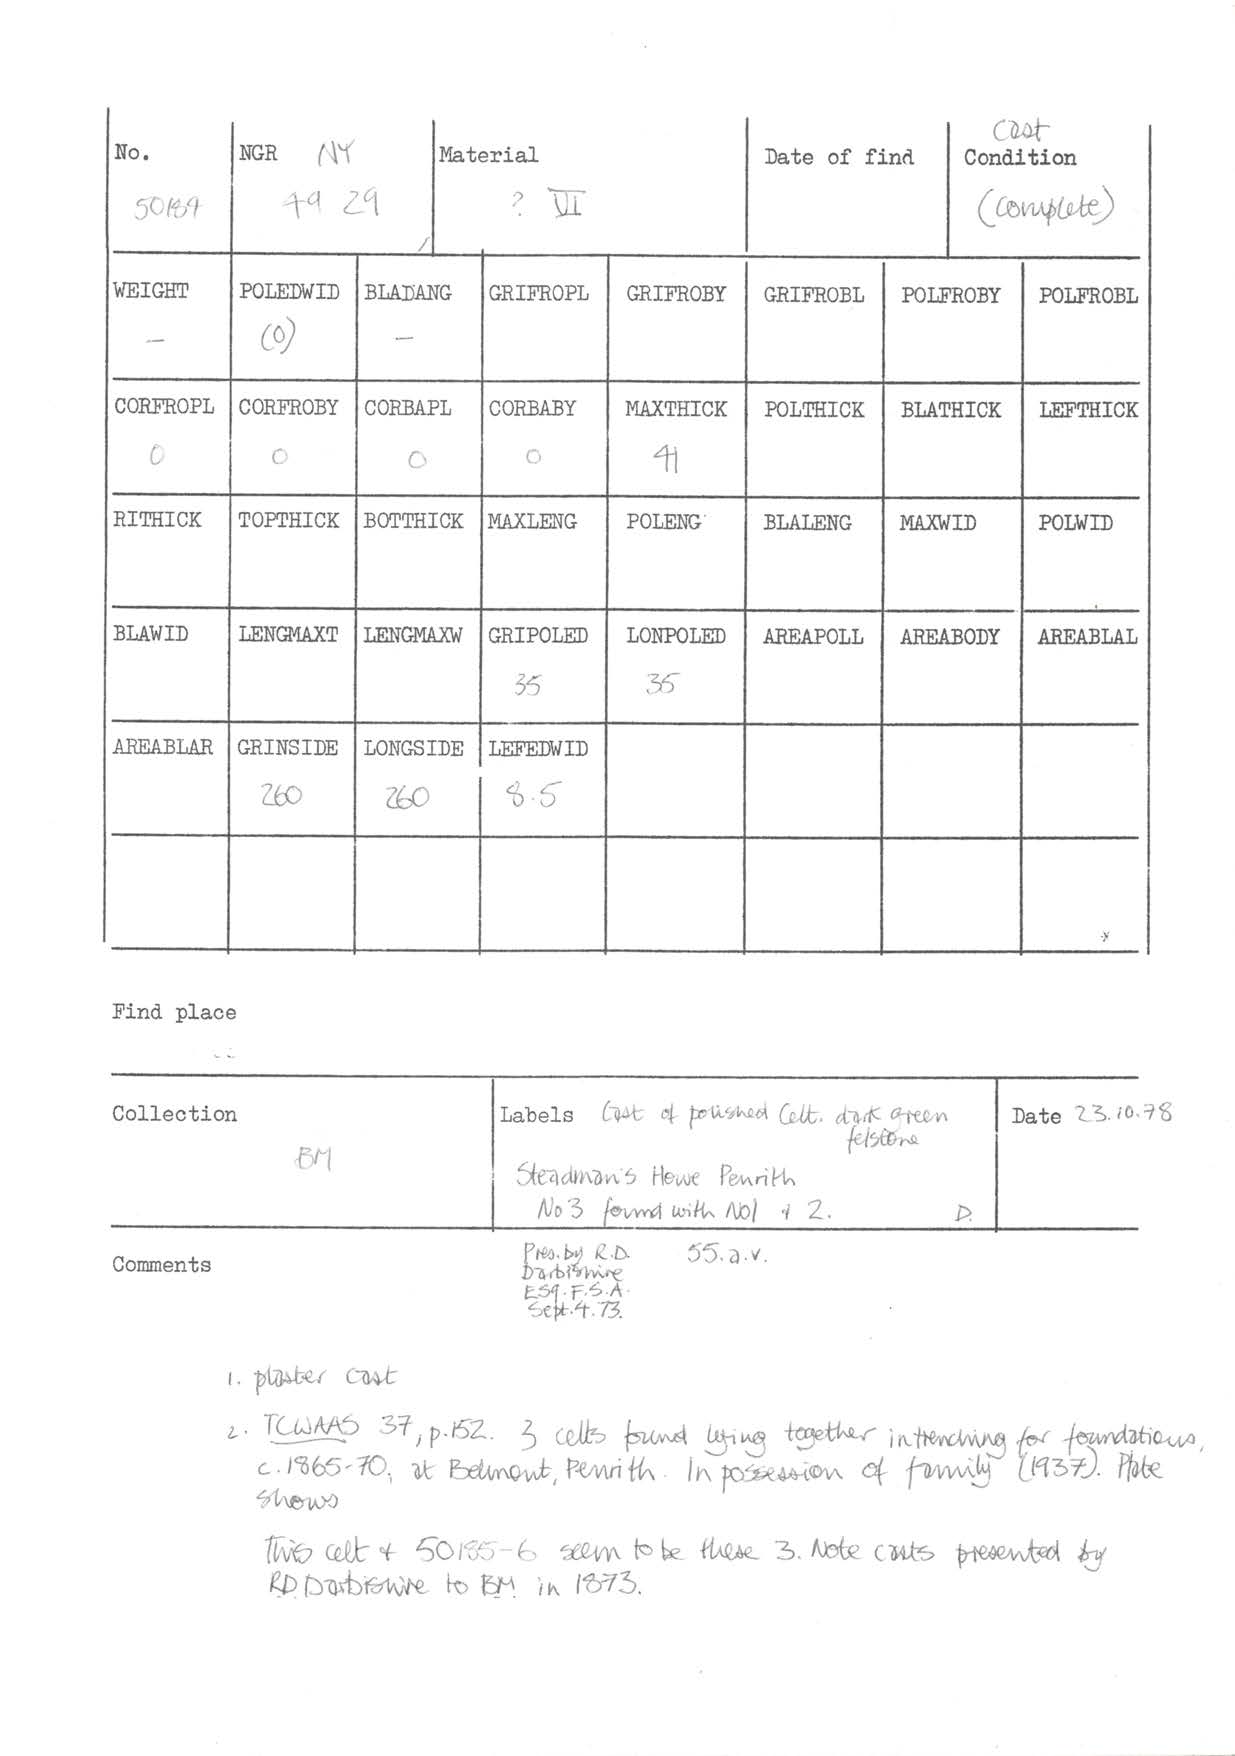 No. NGR NY Material Date of find Cast Condition
50184 49 29 ? VI (complete)
WEIGHT POLEDWID BLADANG GRIFROPL GRIFROBY GRIFROBL POLFROBY POLFROBL
– (0) –
CORFROPL CORFROBY CORBAPL CORBABY MAXTHICK POLTHICK BLATHICK LEFTHICK
0 0 0 0 41
RITHICK TOPTHICK BOTTHICK MAXLENG POLENG BLALENG MAXWID POLWID
BLAWID LENGMAXT LENGMAXW GRIPOLED LONPOLED AREAPOLL AREABODY AREABLAL
35 35
AREABLAR GRINSIDE LONGSIDE LEFEDWID
260 260 8.5
Find place
Collection
BM
Labels Cast of polished Celt. dark green
felstone
Steadman's Howe Penrith
No 3 found with No1 + 2. D.
Date 23.10.78
Comments
Pres. by R.D. 55.a.v.
Darbishire
Esq. F.S.A.
Sept. 4. 73.
1. plaster cast
2. TCWAAS 37, p.152. 3 celts found lying together in trenching for foundations,
c.1865-70, at Belmont, Penrith. In possession of family (1937). Plate
shows
This celt + 50185-6 seem to be these 3. Note casts presented by
R.D. Darbishire to BM in 1873.